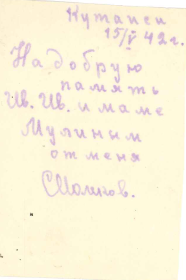 Кутаиси
15/V 42 г.
На добрую
память
Ив. Ив. и маме
Мулиным
от меня